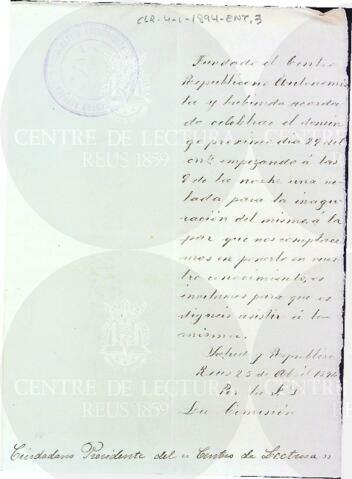 CLR-4-1-1894-ENT, 3
Fundado el Centro
Republicano Autonomis
ta y habiendo acorda
do celebrar el domin
go proximo dia 29 del
empezando á las
9 de la noche una ve-
lada para la inagu-
ración del mismo, á la
par que nos complace
mos en ponerlo en vues
tro conocimiento, os
invitamos para que os
digneis asistir á la
misma.
Salud y Republica
Reus 25 de Abril 1894
Por la
La Comisión
Ciudadano Presidente del "Centro de Lectura"
CENTRE DE LECTURA
REUS 1859
CENTRE DE LECTURA
REUS 1859